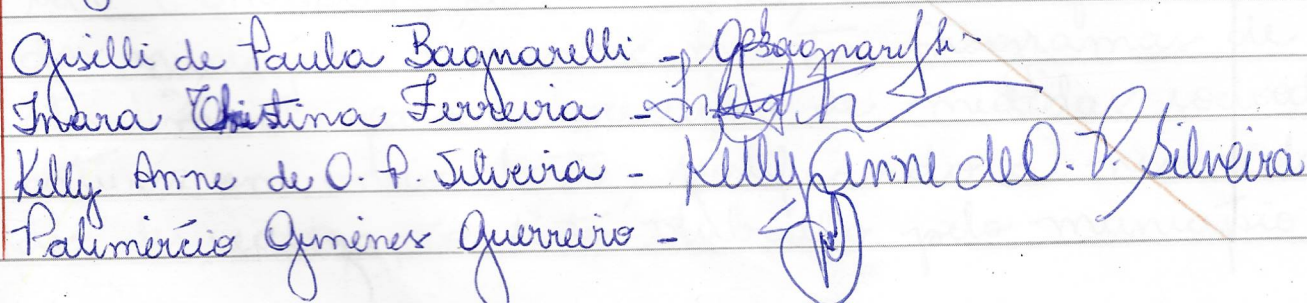 Giselli de Paula Bagnarelli - GBagnarelli
Inara Cristina Ferreira -
Kelly Anne de O. P. Silveira - Kelly Anne de O. P. Silveira
Palimércio Gimenes Guerreiro -